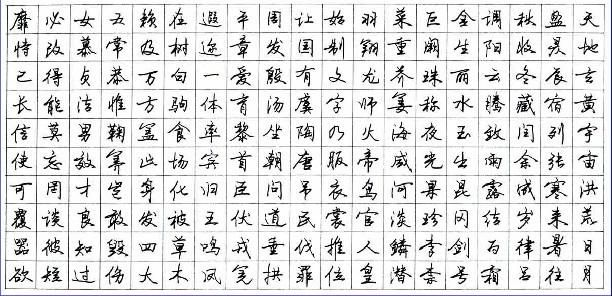 天地玄黄宇宙洪荒日月
盈昃辰宿列张寒来暑往
秋收冬藏闰余成岁律吕
调阳云腾致雨露结为霜
金生丽水玉出昆冈剑号
巨阙珠称夜光果珍李柰
菜重芥姜海咸河淡鳞潜
羽翔龙师火帝鸟官人皇
始制文字乃服衣裳推位
让国有虞陶唐吊民伐罪
周发殷汤坐朝问道垂拱
平章爱育黎首臣伏戎羌
遐迩一体率宾归王鸣凤
在树白驹食场化被草木
赖及万方盖此身发四大
五常恭惟鞠养岂敢毁伤
女慕贞洁男效才良知过
必改得能莫忘罔谈彼短
靡恃己长信使可覆器欲